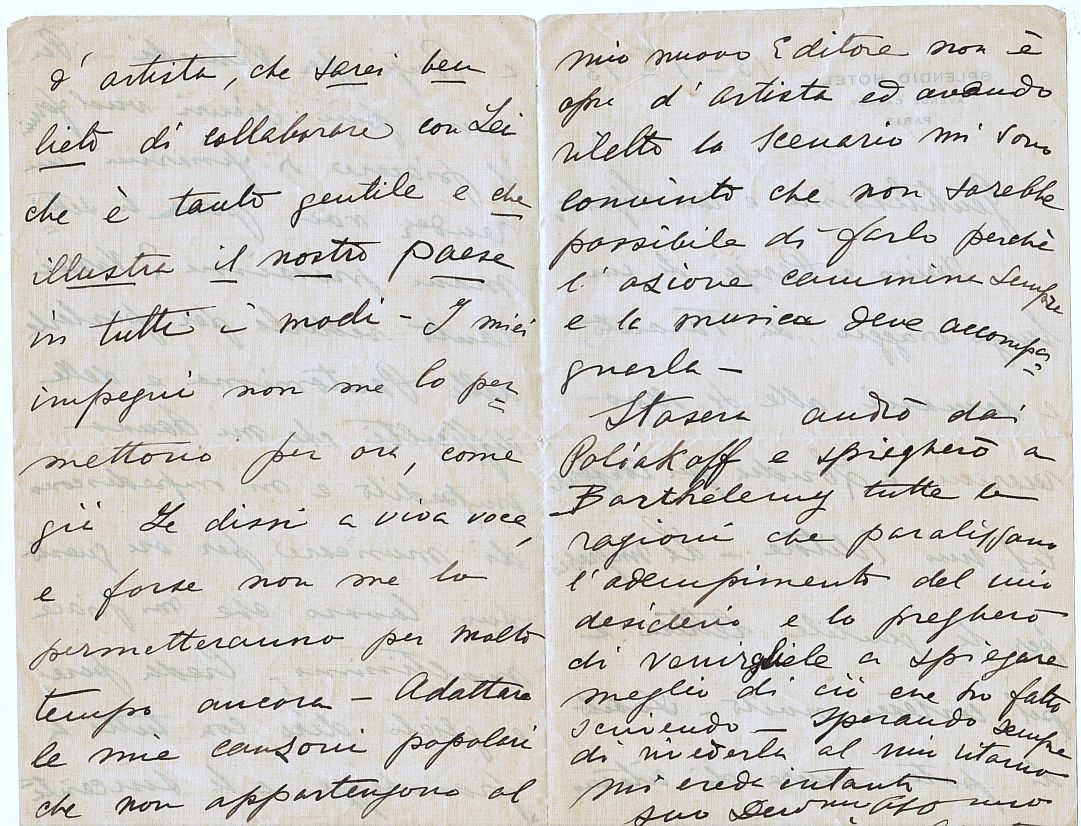 d'artista, che sarei ben
lieto di collaborare con Lei
che è tanto gentile e che
illustra il nostro paese
in tutti i modi - I miei
impegni non me lo per=
mettono per ora, come
già Le dissi a viva voce,
e forse non me lo
permetteranno per molto
tempo ancora - Adattare
le mie canzoni popolari
che non appartengono al
mio nuovo Editore non è
opre d'artista ed avendo
riletto lo scenario mi sono
convinto che non sarebbe
possibile di farlo perchè
l'azione cammina sempre
e la musica deve accompa=
gnarla -
Stasera andrò dai
Poliakoff e spiegherò a
Barthélemy tutte le
ragioni che paralizzano
l'adempimento del mio
desiderio e lo pregherò
di venirgliele a spiegare
meglio di ciò che ho fatto
scrivendo - Sperando sempre
di rivederla al mio ritorno
mi creda intanto
suo
SPLENDID HOTEL
PARIS